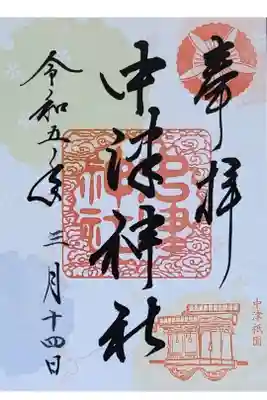 奉拝
中津神社
令和五年三月十四日
中津神社
中津祇園